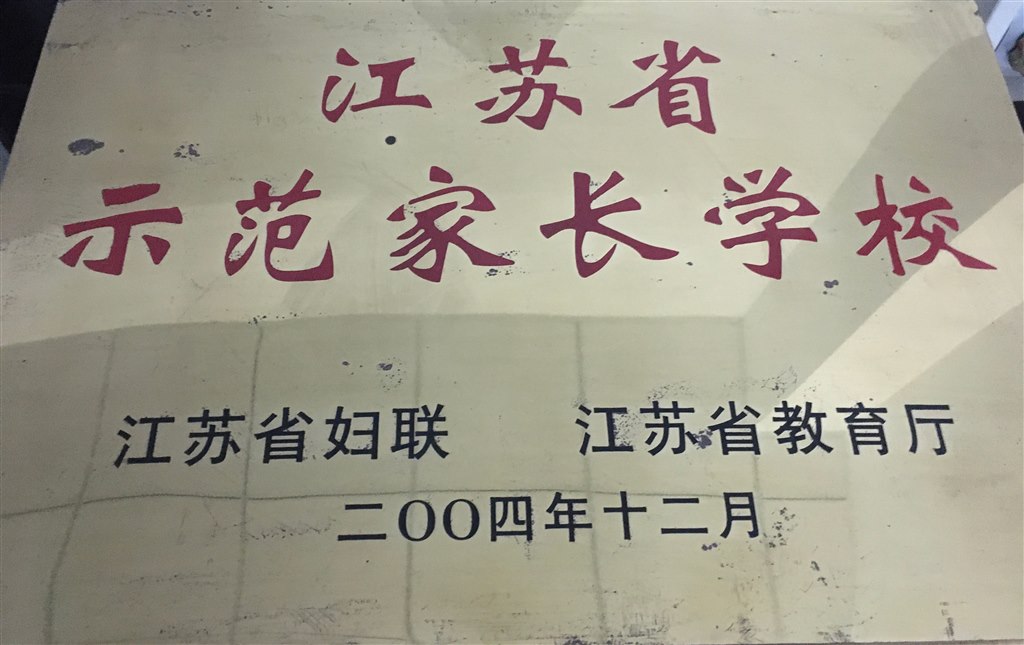 江苏省
示范家长学校
江苏省妇联 江苏省教育厅
二OO四年十二月